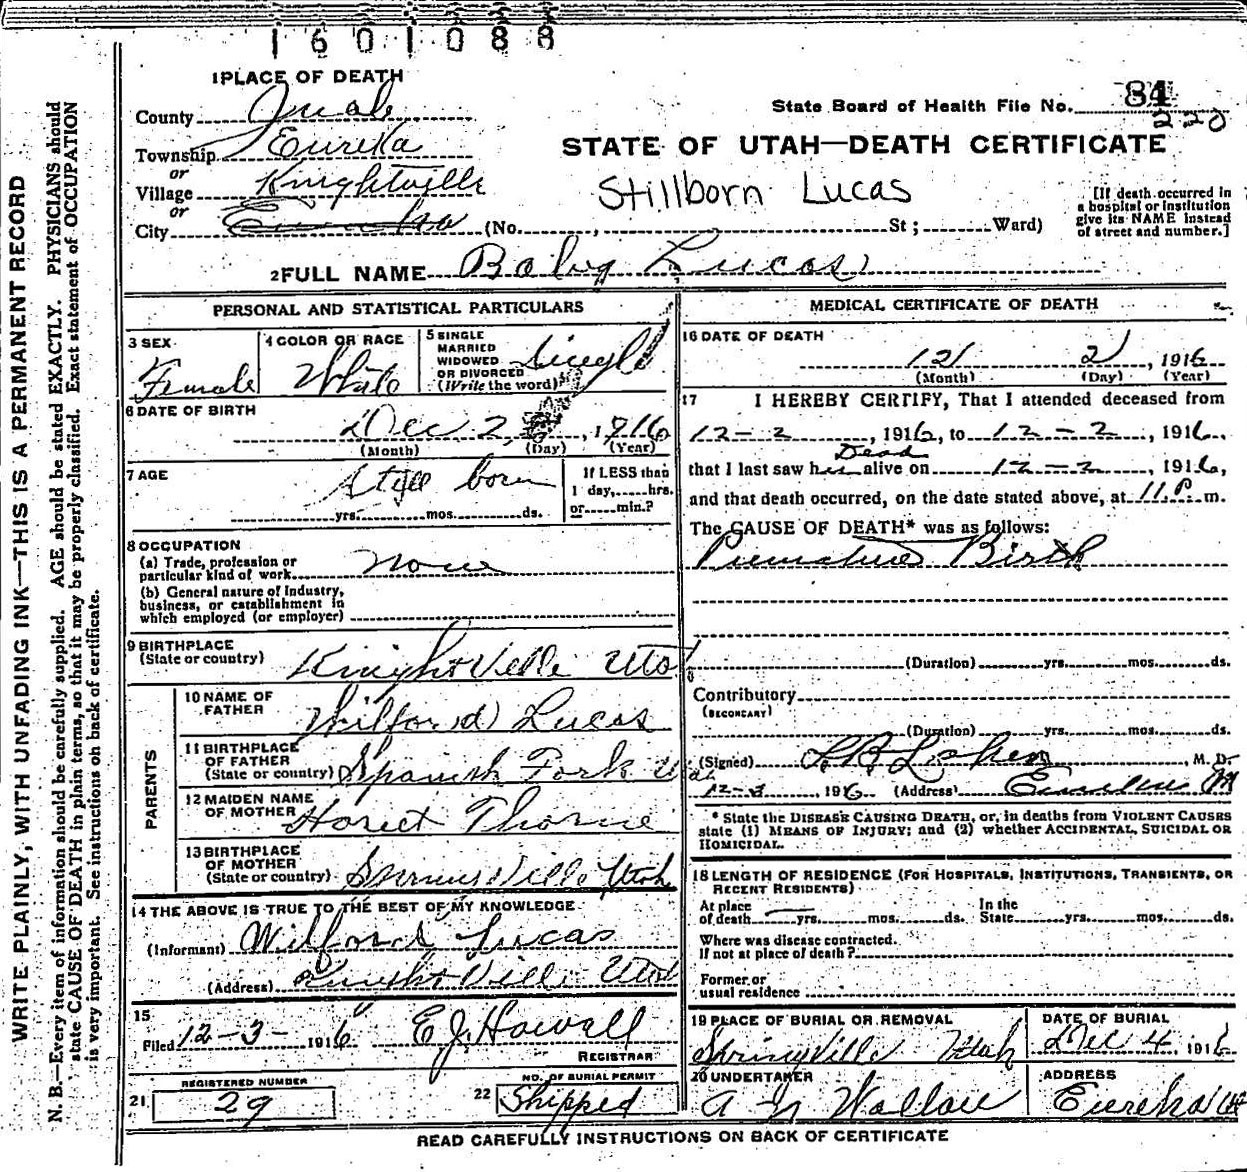 1601088
1 PLACE OF DEATH
County Juab
State Board of Health File No. 84
220
Township Eureka
or
STATE OF UTAH—DEATH CERTIFICATE
Village Knightville
or
Stillborn Lucas
City Eureka (No. , St ; Ward)
[If death occurred in a hospital or institution give its NAME instead of street and number.]
2 FULL NAME Baby Lucas
PERSONAL AND STATISTICAL PARTICULARS
3 SEX
Female
4 COLOR OR RACE
White
5 SINGLE MARRIED WIDOWED OR DIVORCED (Write the word)
Single
6 DATE OF BIRTH
Dec 2, 1916
(Month) (Day) (Year)
7 AGE
Still born
yrs. mos. ds.
If LESS than 1 day, hrs. or min.?
8 OCCUPATION
(a) Trade, profession or particular kind of work None
(b) General nature of Industry, business, or establishment in which employed (or employer)
9 BIRTHPLACE
(State or country) KnightVille Utah
PARENTS
10 NAME OF FATHER Wilford Lucas
11 BIRTHPLACE OF FATHER (State or country) Spanish Fork Utah
12 MAIDEN NAME OF MOTHER Thorne
13 BIRTHPLACE OF MOTHER (State or country) SpringVille Utah
14 THE ABOVE IS TRUE TO THE BEST OF MY KNOWLEDGE
(Informant) Wilford Lucas
(Address) KnightVille Utah
15
Filed 12-3- 1916 E J Howell
REGISTRAR
21 REGISTERED NUMBER
29
22 NO. OF BURIAL PERMIT
Shipped
MEDICAL CERTIFICATE OF DEATH
16 DATE OF DEATH
12 2, 1916
(Month) (Day) (Year)
17 I HEREBY CERTIFY, That I attended deceased from
12-2, 1916, to 12-2, 1916,
Dead
that I last saw her alive on 12-2, 1916,
and that death occurred, on the date stated above, at 11 P m.
The CAUSE OF DEATH* was as follows:
Premature Birth
(Duration) yrs. mos. ds.
Contributory
(SECONDARY)
(Duration) yrs. mos. ds.
(Signed) , M. D.
12-3, 1916 (Address)
* State the DISEASE CAUSING DEATH, or, in deaths from VIOLENT CAUSES
state (1) MEANS OF INJURY; and (2) whether ACCIDENTAL, SUICIDAL OR
HOMICIDAL.
18 LENGTH OF RESIDENCE (FOR HOSPITALS, INSTITUTIONS, TRANSIENTS, OR
RECENT RESIDENTS)
At place of death yrs. mos. ds. In the State yrs. mos. ds.
Where was disease contracted.
If not at place of death?
Former or
usual residence
19 PLACE OF BURIAL OR REMOVAL
SpringVille Utah
DATE OF BURIAL
Dec 4, 1916
20 UNDERTAKER
A N Wallace
ADDRESS
Eureka Ut
READ CAREFULLY INSTRUCTIONS ON BACK OF CERTIFICATE
WRITE PLAINLY, WITH UNFADING INK—THIS IS A PERMANENT RECORD
N. B.—Every item of information should be carefully supplied. AGE should be stated EXACTLY. PHYSICIANS should
state CAUSE OF DEATH in plain terms, so that it may be properly classified. Exact statement of OCCUPATION
is very important. See instructions on back of certificate.